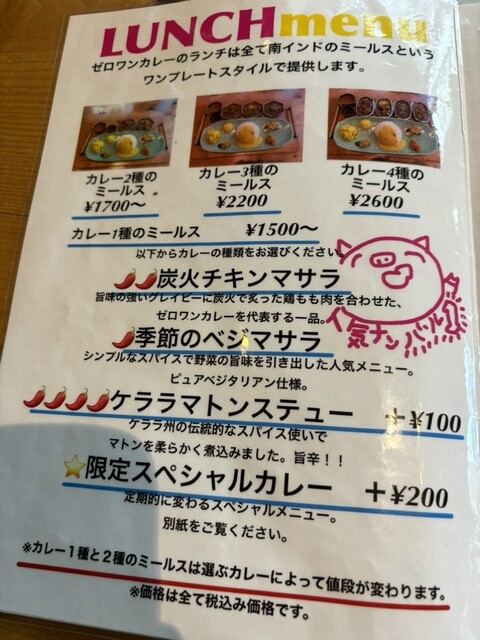 LUNCH menu
ゼロワンカレーのランチは全て南インドのミールスという
ワンプレートスタイルで提供します。
カレー2種の
ミールス
¥1700〜
カレー3種の
ミールス
¥2200
カレー4種の
ミールス
¥2600
カレー1種のミールス ¥1500〜
以下からカレーの種類をお選びください。
炭火チキンマサラ
旨味の強いグレイビーに炭火で炙った鶏もも肉を合わせた、
ゼロワンカレーを代表する一品。
人気ナンバル1
季節のベジマサラ
シンプルなスパイスで野菜の旨味を引き出した人気メニュー。
ピュアベジタリアン仕様。
ケララマトンステュー +¥100
ケララ州の伝統的なスパイス使いで
マトンを柔らかく煮込みました。旨辛！！
限定スペシャルカレー +¥200
定期的に変わるスペシャルメニュー。
別紙をご覧ください。
※カレー１種と２種のミールスは選ぶカレーによって値段が変わります。
※価格は全て税込み価格です。